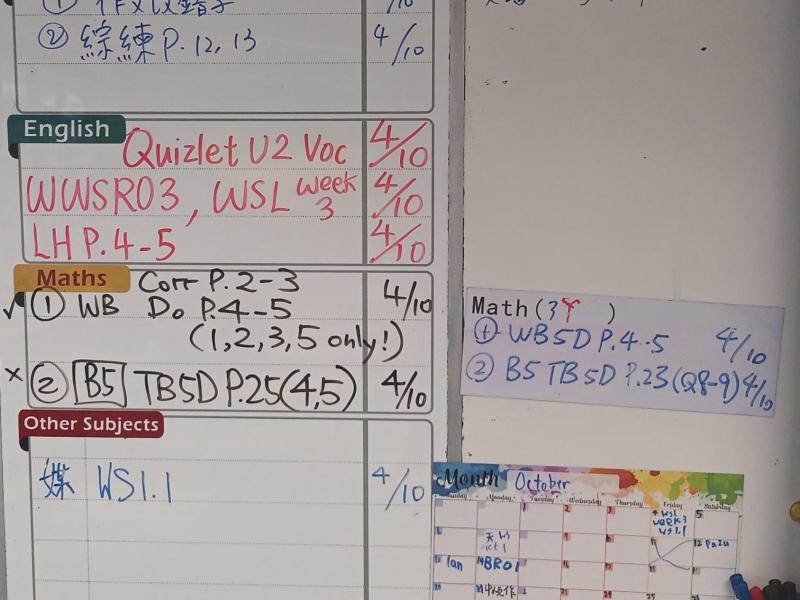 ① 作文改錯字 /10
② 綜練 P.12, 13 4/10
English
Quizlet U2 Voc 4/10
WWSR03, WSL week 3 4/10
LH P.4-5 4/10
Maths
Corr P.2-3
✓ ① WB Do P.4-5 4/10
(1,2,3,5 only!)
× ② B5 TB5D P.25(4,5) 4/10
Other Subjects
媒 WS1.1 4/10
Math (3Y )
① WB5D P.4-5 4/10
② B5 TB5D P.23(Q8-9) 4/10
Month October
Monday Tuesday Wednesday Thursday Friday Saturday
1 2 3 4 WSL 5
week 3
WS1.1
12 Pazu
Ian 14 BR01